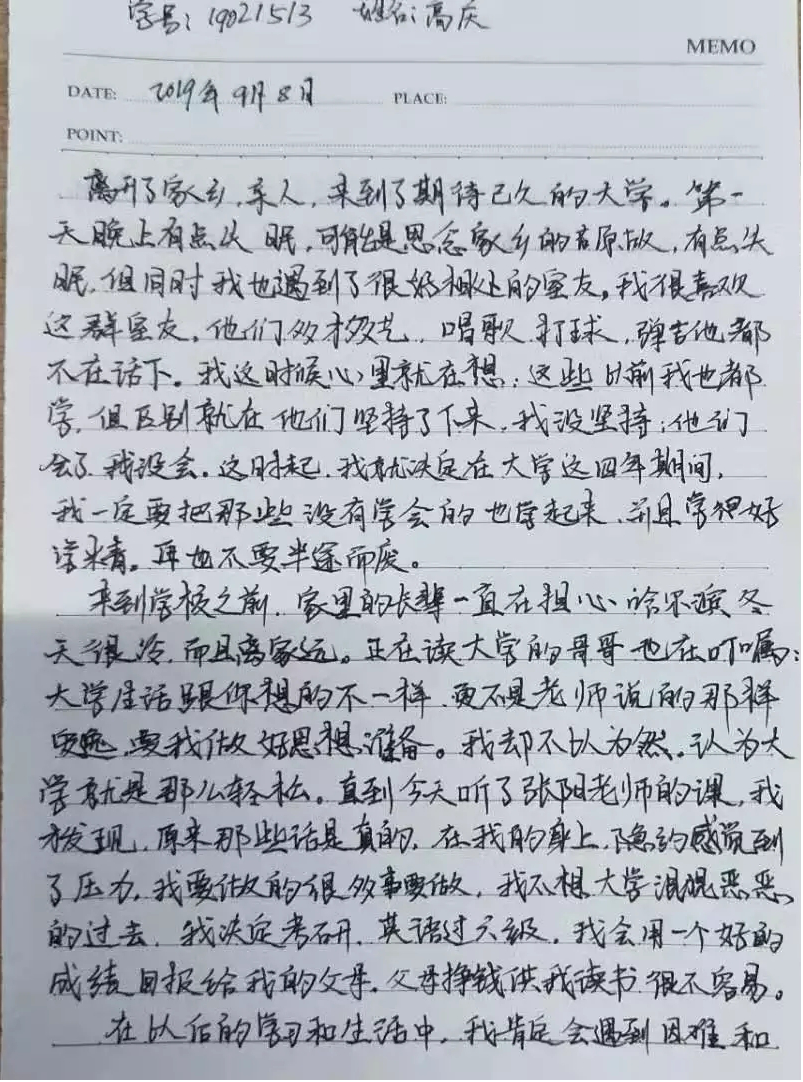 学号：19021513 姓名：高庆
MEMO
DATE: 2019年9月8日 PLACE:
POINT:
离开了家乡，亲人，来到了期待已久的大学。第一
天晚上有点失眠，可能是思念家乡的原故，有点失
眠，但同时我也遇到了很好相处的室友。我很喜欢
这群室友，他们多才多艺，唱歌，打球，弹吉他都
不在话下。我这时候心里就在想：这些以前我也都
学，但区别就在他们坚持了下来，我没坚持；他们
会了，我没会。这时起，我就决定在大学这四年期间，
我一定要把那些没有学会的也学起来，并且学得好
学精。再也不要半途而废。
来到学校之前，家里的长辈一直在担心哈尔滨冬
天很冷，而且离家远。正在读大学的哥哥也在叮嘱：
大学生活跟你想的不一样，更不是老师说的那样
安逸，要我做好思想准备。我却不以为然，认为大
学就是那么轻松。直到今天听了张阳老师的课，我
才发现，原来那些话是真的，在我的身上，隐约感觉到
了压力，我要做的很多事要做，我不想大学混混恶恶
的过去，我决定考研，英语过六级，我会用一个好的
成绩回报给我的父母，父母挣钱供我读书很不容易。
在以后的学习和生活中，我肯定会遇到困难和